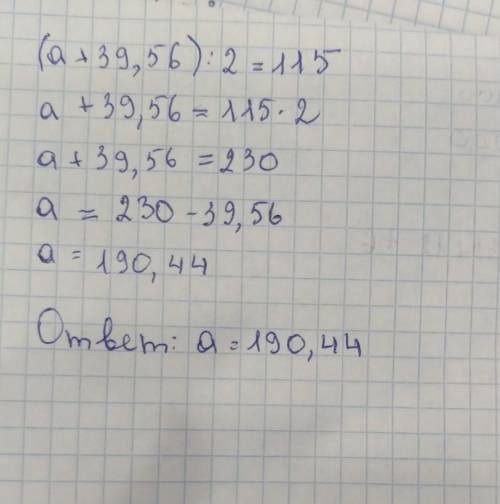 (a + 39,56) : 2 = 115
a + 39,56 = 115 · 2
a + 39,56 = 230
a = 230 - 39,56
a = 190,44
Ответ: a = 190,44